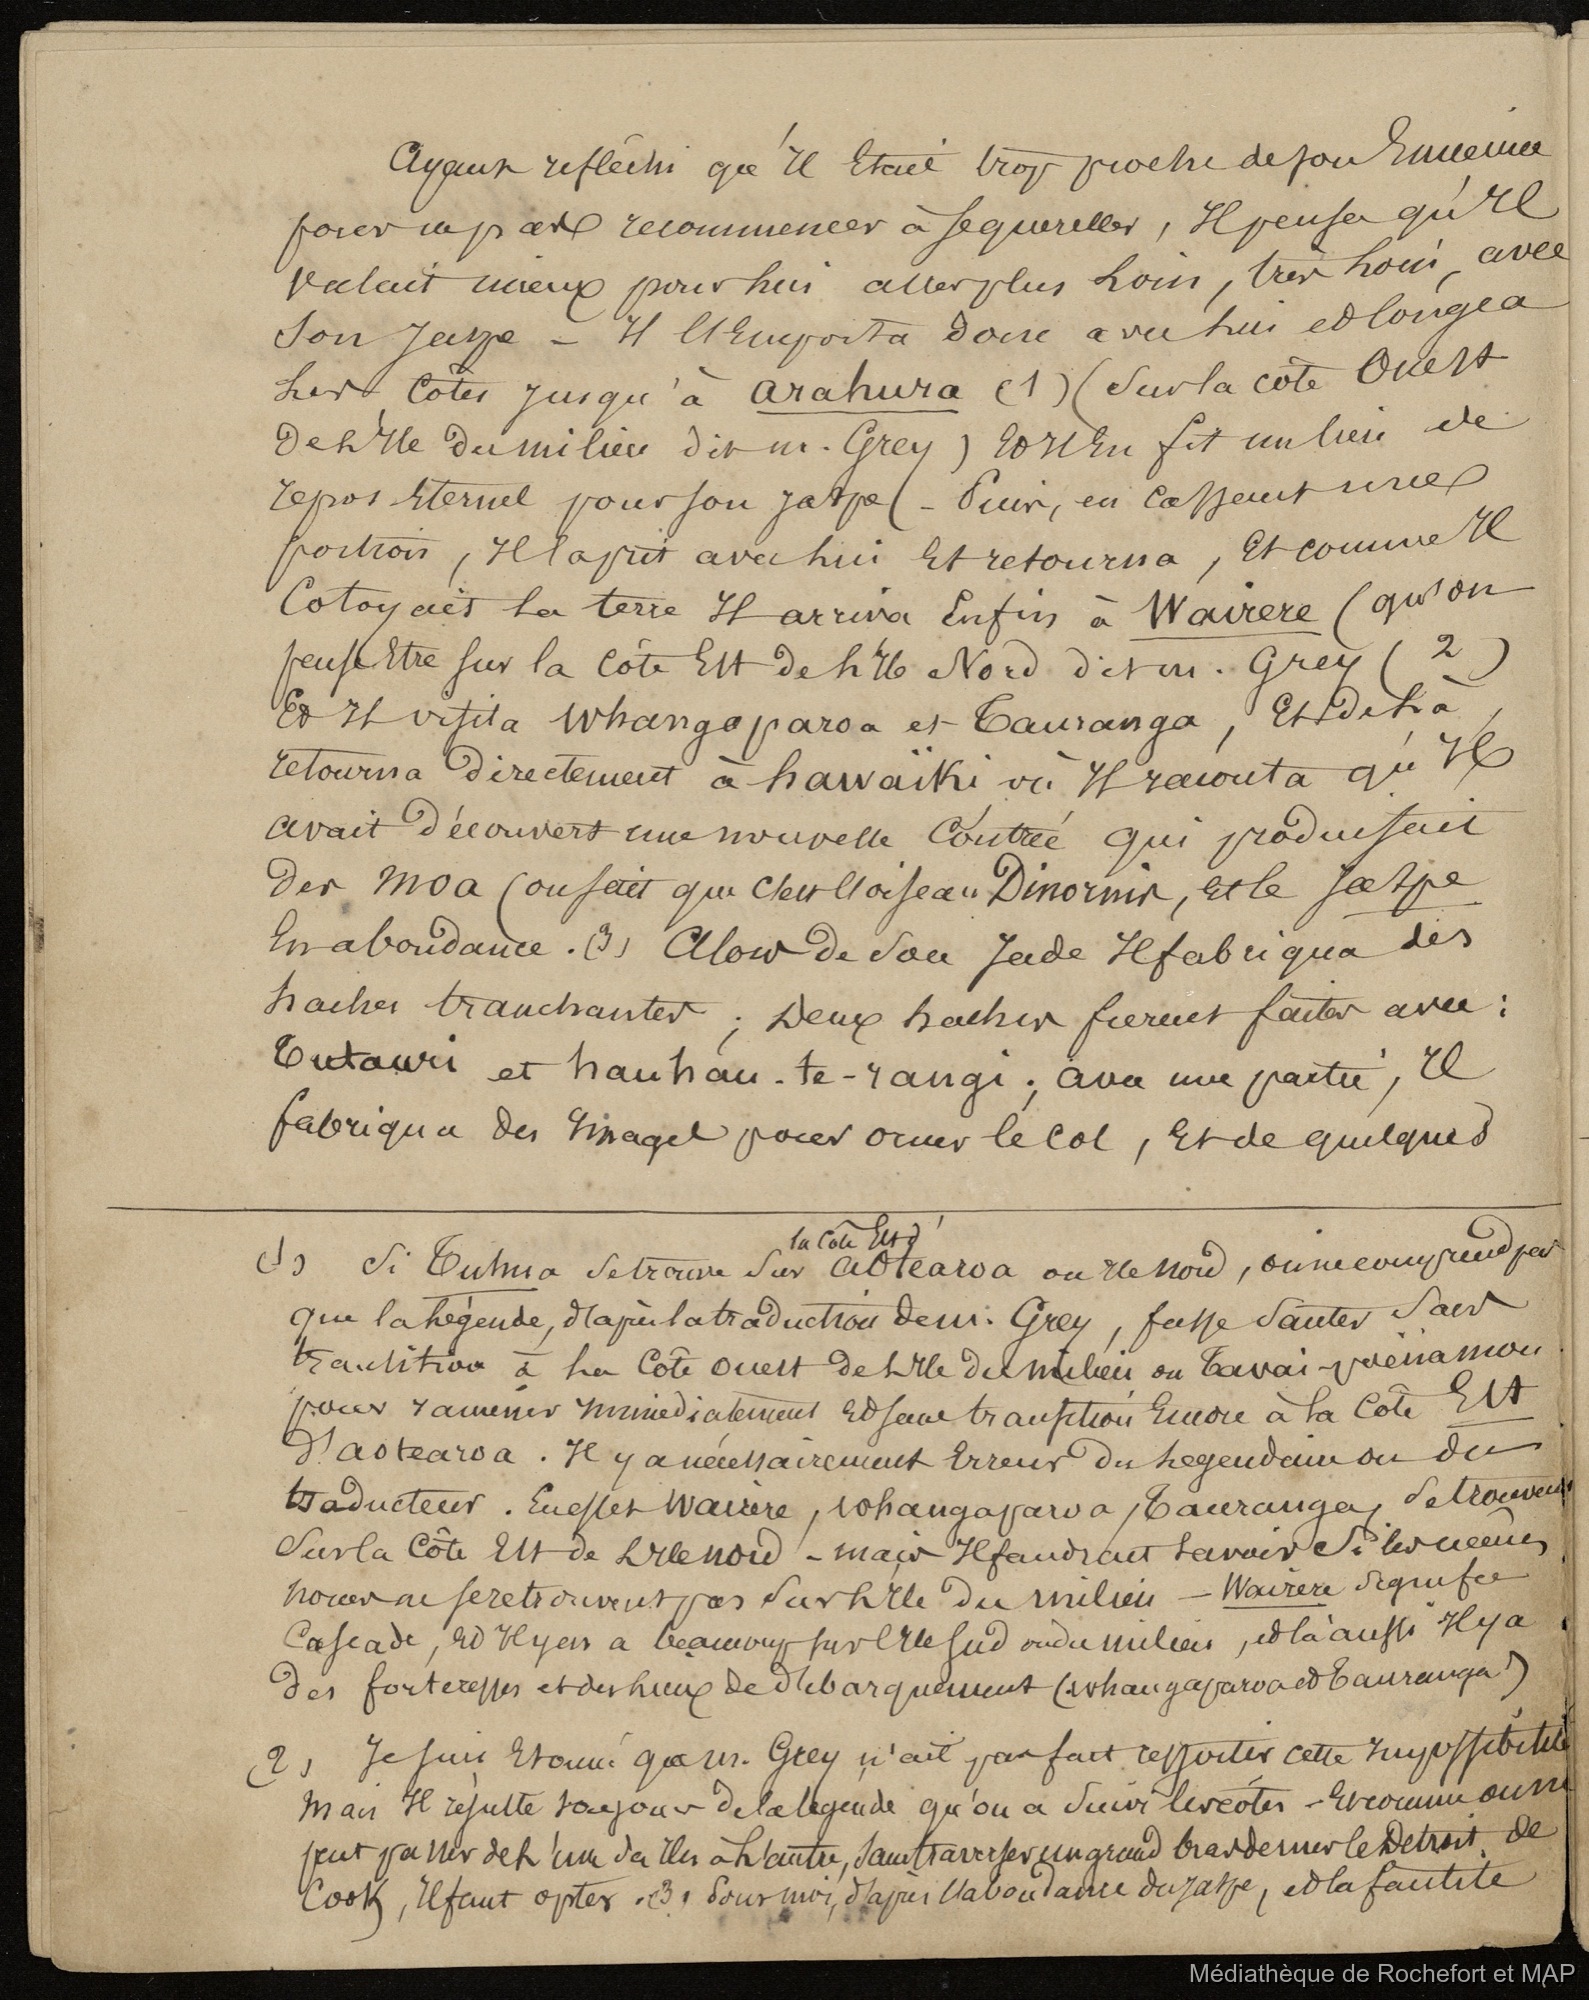 Ayant réfléchi qu'Il Etait trop proche de son Ennemie
pour ne pas recommencer à se quereller, Il pensa qu'Il
Valait mieux pour lui aller plus Loin, très Loin, avec
Son Jaspe - Il l'Emporta donc avec lui et longea
Les Côtes Jusqu'à arahura (1) (Sur la côte Ouest
De L'Ile Du milieu dit m. Grey) Et Il En fit un lieu de
repos Eternel pour son jaspe (- Puis, en cassant une
portion, Il la prit avec lui Et retourna, Et comme Il
Cotoyait La terre Il arriva Enfin à Wairere (qu'on
pense Etre sur la Côte Est De L'Ile Nord dit m. Grey (2)
Et Il visita Whangaparoa et Tauranga, Et de Là,
retourna Directement à hawaïki où Il raconta qu'Il
avait Découvert une nouvelle Contrée qui produisait
Des Moa (on sait que c'est l'oiseau Dinornis, et le Jaspe
En abondance. (3) Alors De Son Jade Il fabriqua des
haches tranchantes; Deux haches furent faites avec:
Tutauri et hauhau-te-rangi; avec une partie, Il
fabriqua des Images pour orner le Col, Et de quelques
(1) Si Tuhua se trouve Sur la Côte Est d'
aotearoa ou Ile Nord, on ne comprend pas
que la Légende, d'après la traduction de m. Grey, fasse Sauter Sans
transition à La Côte Ouest de L'Ile Du Milieu ou Tavai-poënamou
pour ramener Immediatement Et sans transition Encore à la Côte Est
d'aotearoa. Il y a nécessairement Erreur Du Legendaire ou du
traducteur. En effet Wairere, whangaparoa, Tauranga, se trouvent
Sur la Côte Est de L'Ile nord - mais Il faudrait Savoir Si les mêmes
noms ne se retrouvent pas Sur L'Ile Du Milieu - Wairere Signifie
Cascade, Et Il y en a beaucoup sur l'Ile Sud ou du milieu, et là aussi Il y a
Des forteresses et des Lieux de débarquement (whangaparoa et Tauranga)
(2) Je suis Etonné que m. Grey n'ait pas fait ressortir cette Impossibilité
Mais Il résulte toujours de la legende qu'on a Suivi les côtes - Et comme on ne
peut passer de L'une des Iles à L'autre, Sans traverser un grand bras de mer le Detroit de
Cook, Il faut opter. (3) Pour moi, d'après l'abondance du Jaspe, et la
Médiathèque de Rochefort et MAP